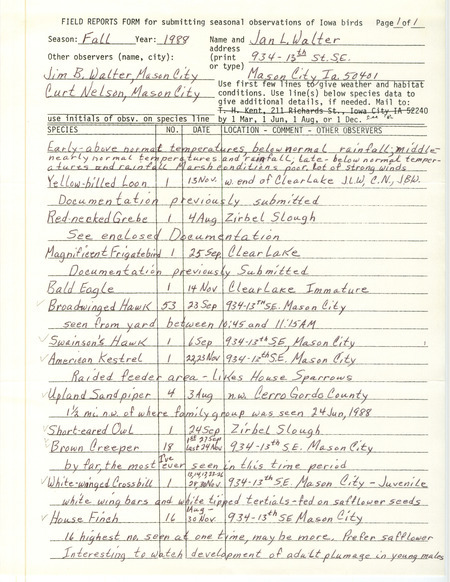 FIELD REPORTS FORM for submitting seasonal observations of Iowa birds Page 1 of 1
Season: Fall Year: 1988 Name and address (print or type) Jan L. Walter
934-13th St. SE.
Mason City Ia. 50401
Other observers (name, city):
Jim B. Walter, Mason City
Curt Nelson, Mason City
Use first few lines to give weather and habitat
conditions. Use line(s) below species data to
give additional details, if needed. Mail to:
T. H. Kent, 211 Richards St., Iowa City IA 52240
use initials of obsv. on species line by 1 Mar, 1 Jun, 1 Aug, or 1 Dec.
SPECIES NO. DATE LOCATION - COMMENT - OTHER OBSERVERS
Early-above normal temperatures, below normal rainfall; middle-
nearly normal temperatures and rainfall, late-below normal temper-
atures and rainfall Marsh conditions poor. Lot of strong winds
Yellow-billed Loon 1 13 Nov. w. end of Clear Lake J.L.W, C.N., JBW.
Documentation previously submitted
Red-necked Grebe 1 4 Aug Zirbel Slough
See enclosed Documentation
Magnificent Frigatebird 1 25 Sep Clear Lake
Documentation previously Submitted
Bald Eagle 1 14 Nov Clear Lake Immature
Broadwinged Hawk 53 23 Sep 934-13th SE. Mason City
seen from yard between 10:45 and 11:15 AM
Swainson's Hawk 1 6 Sep 934-13th SE, Mason City
American Kestrel 1 22,23 Nov 934-13th S.E. Mason City
Raided feeder area - Likes House Sparrows
Upland Sandpiper 4 3 Aug n.w. Cerro Gordo County
1½ mi. n.w. of where family group was seen 24 Jun, 1988
Short-eared Owl 1 24 Sep Zirbel Slough
Brown Creeper 18 1st 27 Sep last 24 Nov 934-13th S.E. Mason City
by far, the most I've ever seen in this time period
White-winged Crossbill 1 28,30 Nov 934-13th SE - Mason City - Juvenile
white wing bars and white tipped tertials-fed on safflower seeds
House Finch 16 Aug - 30 Nov 934-13th SE Mason City
16 highest no. seen at one time, may be more. Prefer safflower
Interesting to watch development of adult plumage in young males